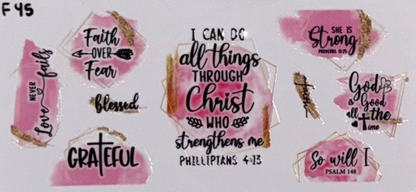 F 45
Faith
OVER
Fear
NEVER
Love fails
blessed
GRATEFUL
I CAN DO
all things
THROUGH
Christ
WHO
strengthens me
PHILLIPTIANS 4:13
SHE IS
Strong
PROVERBS 31:25
God is
Good
all the
time
So will I
PSALM 148